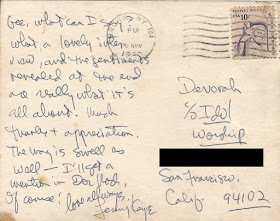 Gee, what can I say?
what a lovely inter
view, and the sentiments
revealed at the end
are really what it's
all about. Much
thanks & appreciation.
The way is swell as
well — I'll get a
in Dor
of course! love always,
NY 104
PM
NOV
US 10c
Devorah
c/o Idol
Worship
San Francisco,
Calif. 94102